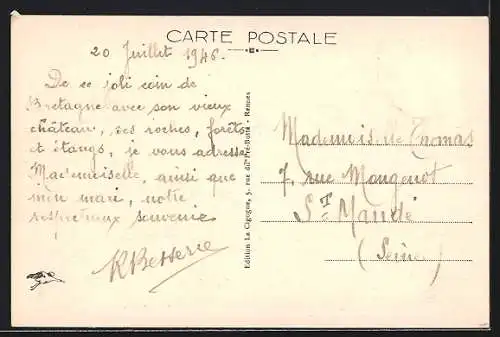 CARTE POSTALE
20 Juillet 1946.
De ce joli coin de
Bretagne avec son vieux
château, ses roches, forêts
et étangs, je vous adresse
Mademoiselle, ainsi que
mon mari, notre
respectueux souvenir
Edition La Cigogne, 5, rue du Pré-Botté - Rennes
Mademoiselle Thomas
7, rue Mongenot
St Mandé
(Seine)